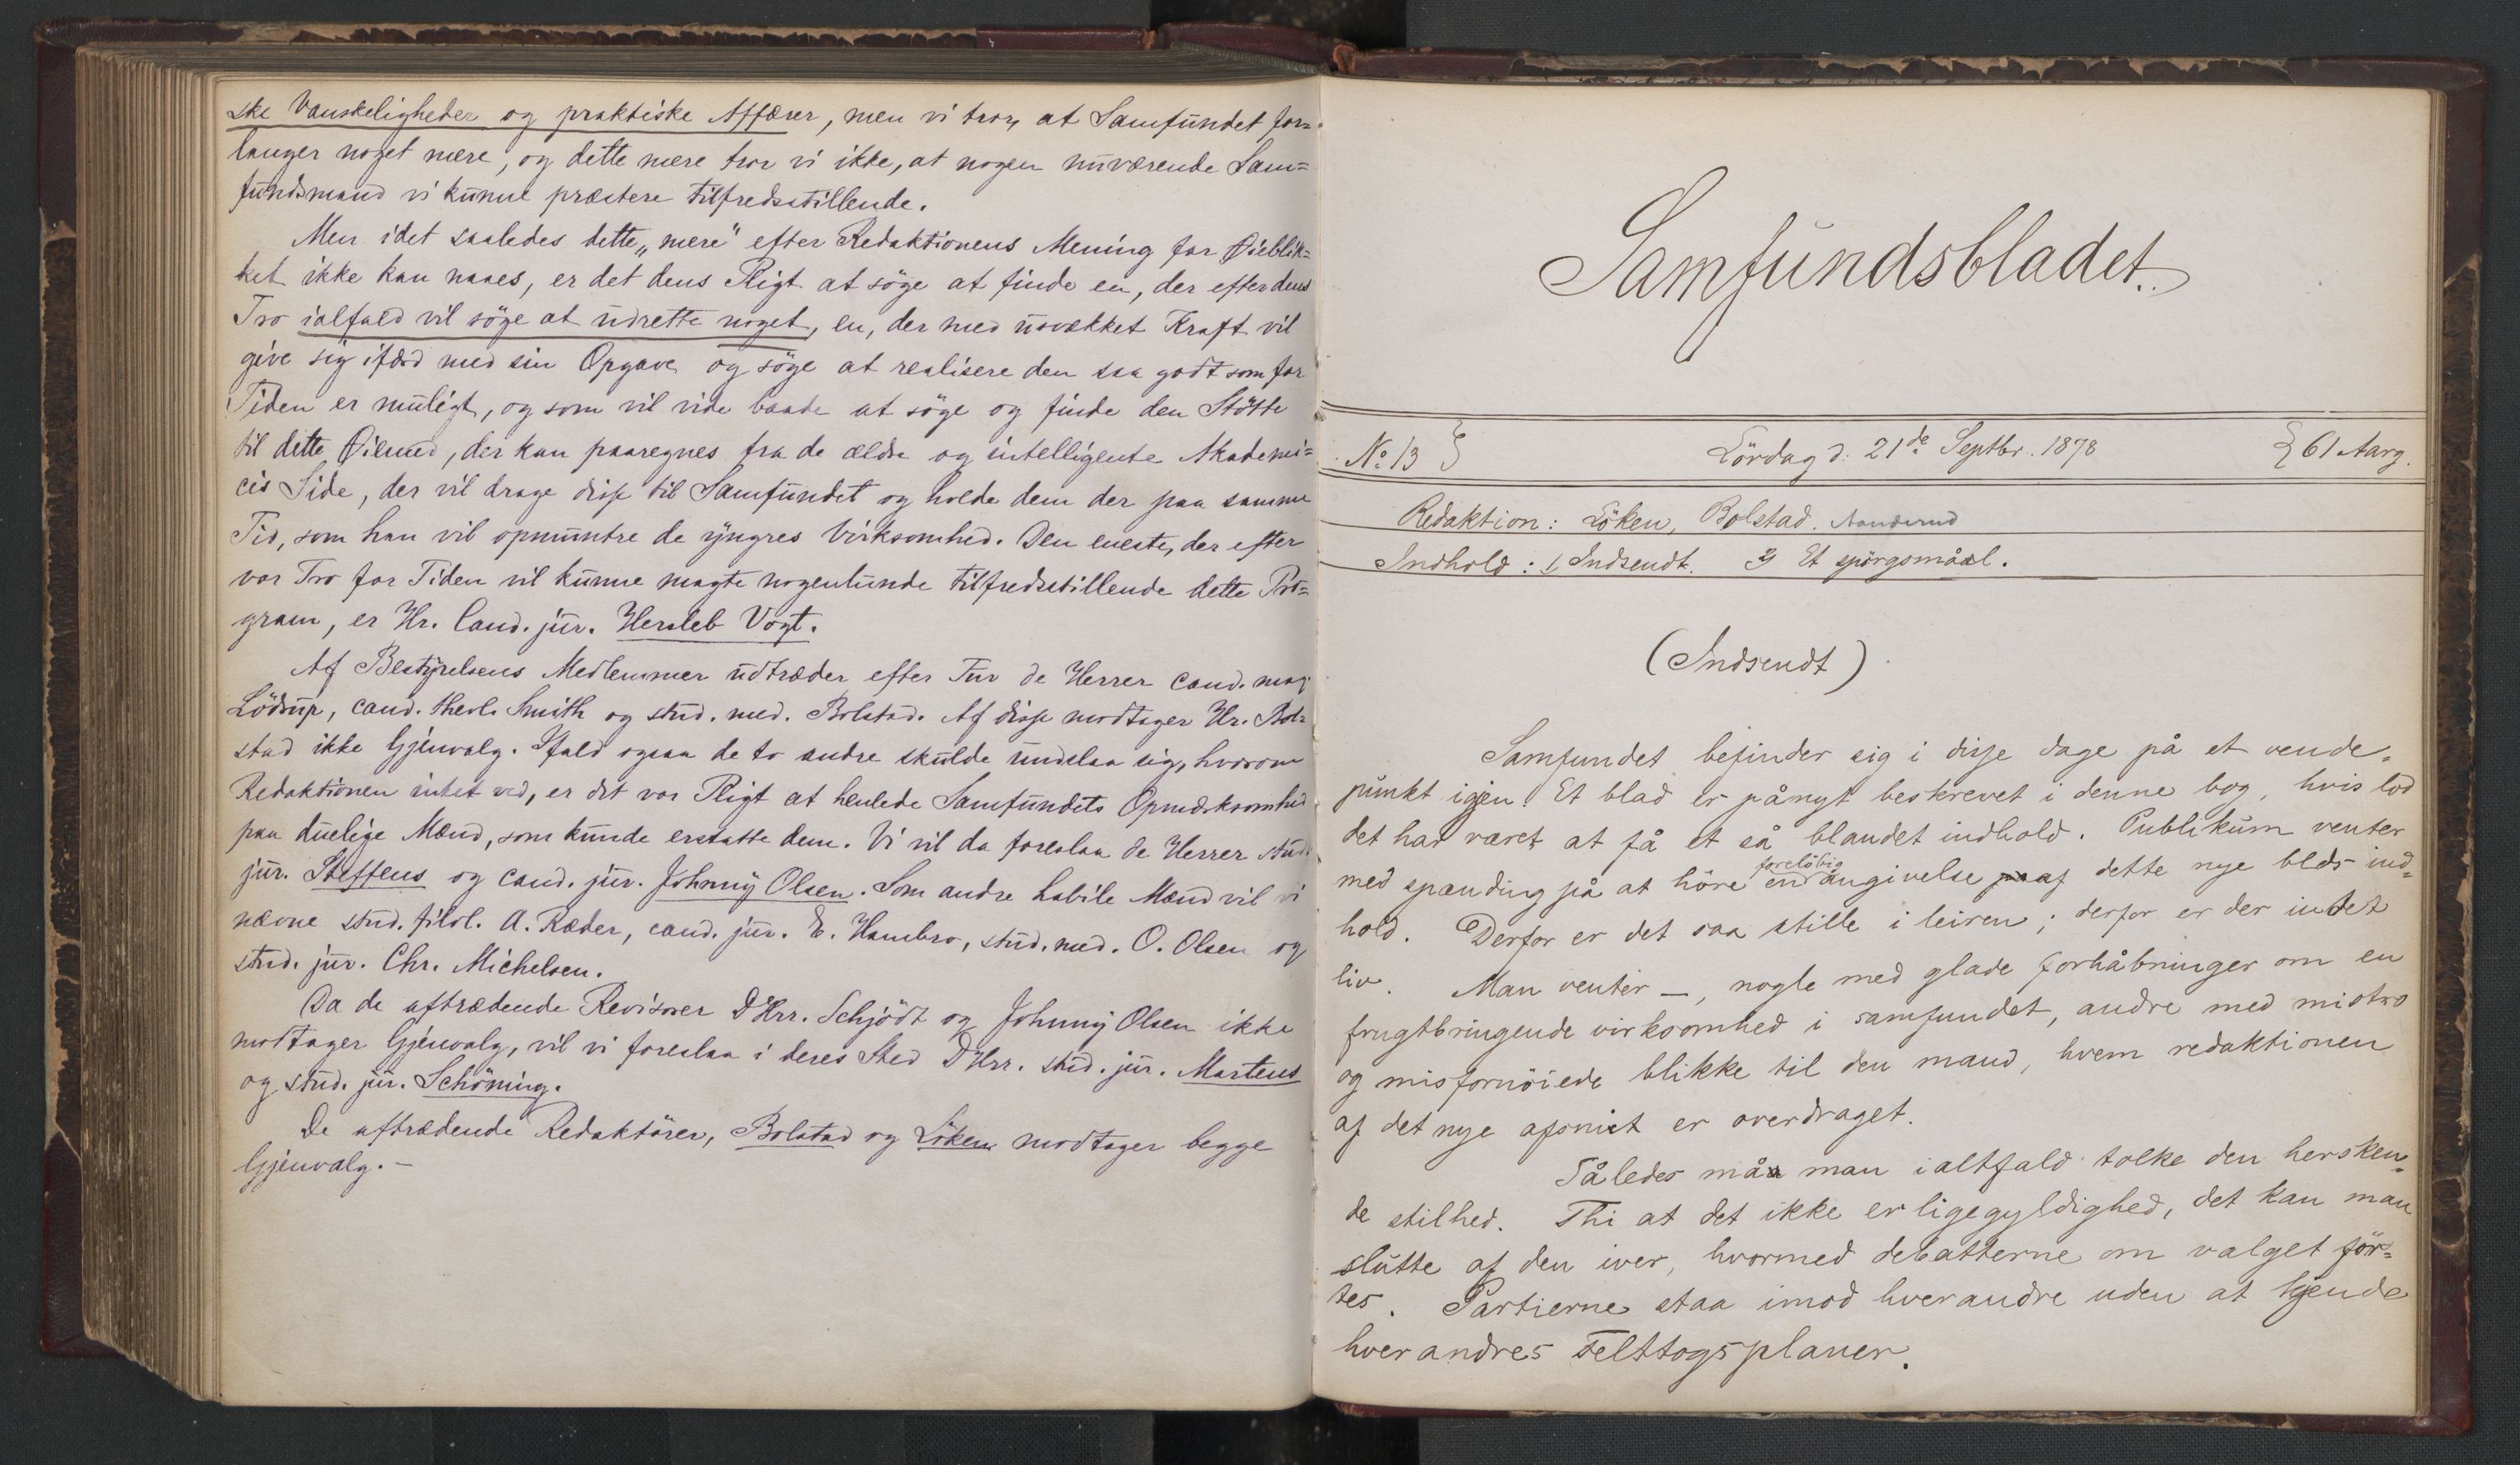 ske Vanskeligheder og praktiske Affærer, men vi tror, at Samfundet for=
langer noget mere, og dette mere tror vi ikke, at nogen nuværende Sam=
fundsmand vi kunne præstere tilfredsstillende.
Men idet saaledes dette „mere“ efter Redaktionens Mening for Øieblik=
ket ikke kan naaes, er det dens Pligt at söge at finde en, der efter dens
Tro ialfald vil söge at udrette noget, en, der med usvækket Kraft vil
give sig ifærd med sin Opgave og söge at realisere den saa godt som for
Tiden er muligt, og som vil vide baade at söge og finde den Stötte
til dette Øiemed, der kan paaregnes fra de ældre og intelligente Akademi=
cis Side, der vil drage disse til Samfundet og holde dem der paa samme
Tid, som han vil opmuntre de yngres Virksomhed. Den eneste, der efter
vor Tro for Tiden vil kunne magte nogenlunde tilfredsstillende dette Pro=
gram, er Hr. Cand. jur. Hersleb Vogt.
Af Bestyrelsens Medlemmer udtræder efter Tur de Herrer cand. mag.
Lödrup, cand. theol. Smith og stud. med. Bolstad. Af disse modtager Hr. Bol=
stad ikke Gjenvalg. Ifald ogsaa de to andre skulde undslaa sig, hvorom
Redaktionen intet ved, er det vor Pligt at henlede Samfundets Opmærksomhed
paa duelige Mænd, som kunde erstatte dem. Vi vil da foreslaa de Herrer stud.
jur. Steffens og cand. jur. Johnny Olsen. Som andre habile Mænd vil vi
nævne stud. filol. A. Ræder, cand. jur. E. Hambro, stud. med. O. Olsen og
stud. jur. Chr. Michelsen.
Da de aftrædende Revisorer DHrr. Schjödt og Johnny Olsen ikke
modtager Gjenvalg, vil vi foreslaa i deres Sted DHrr. stud. jur. Martens
og stud. jur. Schöning.
De aftrædende Redaktörer, Bolstad og Löken modtager begge
Gjenvalg. –
Samfundsbladet.
No 13
Lördag d. 21de Septbr. 1878
61 Aarg.
Redaktion: Löken, Bolstad.
Indhold: 1, Indsendt. 2, Et spörgsmåal.
(Indsendt)
Samfundet befinder sig i disse dage på et vende=
punkt igjen. Et blad er pånyt beskrevet i denne bog, hvis lod
det har været at få et så blandet indhold. Publikum venter
med spænding på at höre en foreløbig angivelse af dette nye blds ind=
hold. Derfor er det saa stille i leiren; derfor er der intet
liv. Man venter –, nogle med glade forhåbninger om en
frugtbringende virksomhed i samfundet, andre med mistro
og misfornöiede blikke til den mand, hvem redaktionen
af det nye afsnit er overdraget.
Således må man ialtfald tolke den hersken=
de stilhed. Thi at det ikke er ligegyldighed, det kan man
slutte af den iver, hvormed debatterne om valget för=
tes. Partierne staa imod hverandre uden at kjende
hverandres Felttogsplaner.